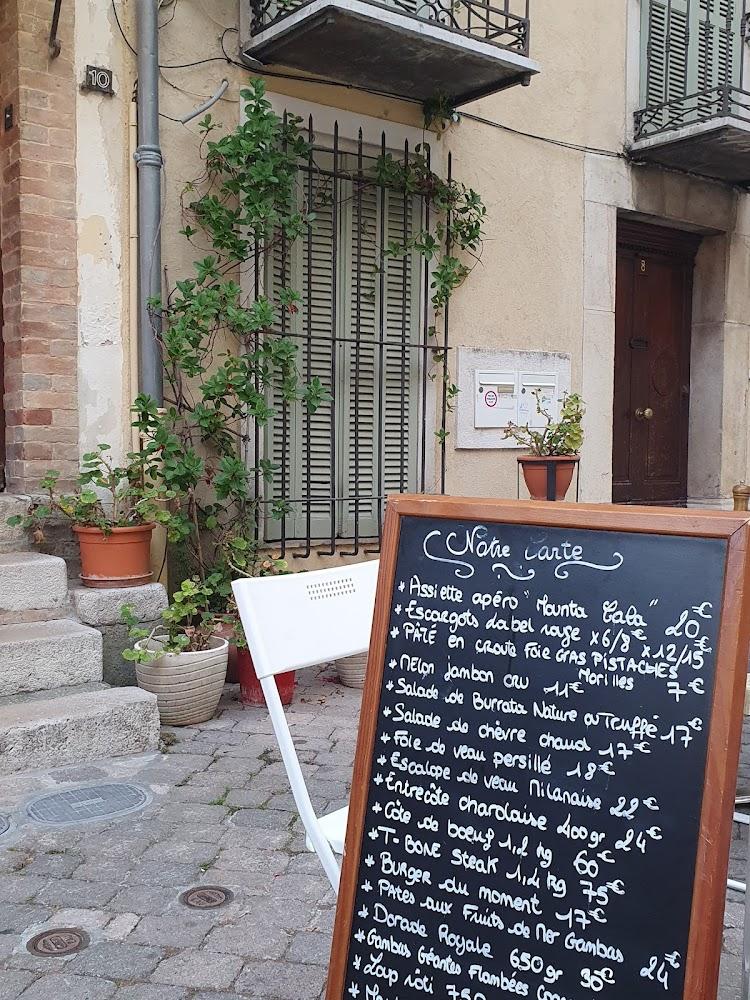 10
8
Notre Carte
* Assiette apéro "Mounta Cala" 20€
* Escargots Label rouge x6/8€ x12/15€
* PÂTÉ EN CROUTE FOIE GRAS PISTACHES Morilles 7€
* MELON jambon cru 11€
* Salade de Burrata Nature ou Truffé 17€
* Salade de chèvre chaud 17€
* Foie de veau persillé 18€
* Escalope de veau Milanaise 22€
* Entrecôte charolaise 400gr 24€
* Côte de boeuf 1,2 kg 60€
* T-BONE Steak 1,4 kg 75€
* Burger du moment 17€
* PATES aux Fruits de Mer Gambas 24€
* Dorade Royale 650gr 30€
* Gambas Géantes Flambées
* Loup rôti 750